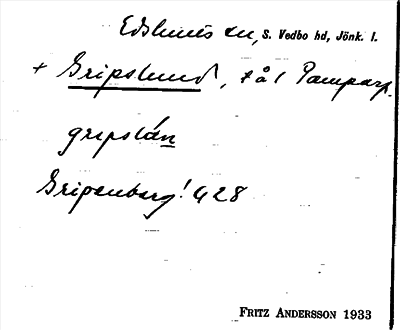 Edshults sn, S. Vedbo hd, Jönk. l.
+ Gripslund, t å l Pamparp.
gripslán
Gripenberg! G 28
FRITZ ANDERSSON 1933